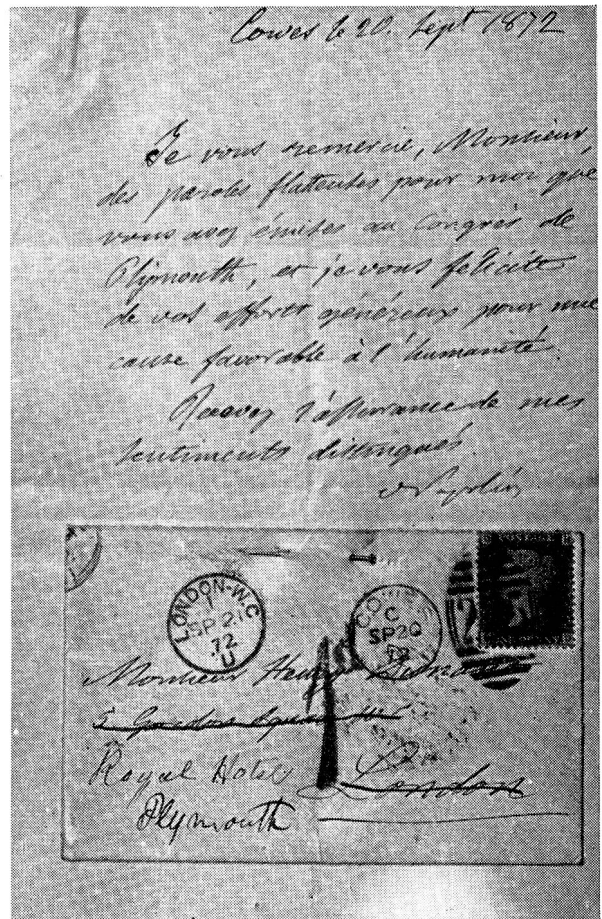 Cowes le 20. Sept 1872
Je vous remercie, Monsieur,
des paroles flatteuses pour moi que
vous avez émises au Congrès de
Plymouth, et je vous félicite
de vos efforts généreux pour une
cause favorable à l'humanité.
Recevez l'assurance de mes
sentiments distingués.
Napoléon
LONDON-W.C
SP 21
72
U
COWES
C
SP 20
72
Monsieur Henry Dunant
5 Gordon Square
Royal Hotel London
Plymouth